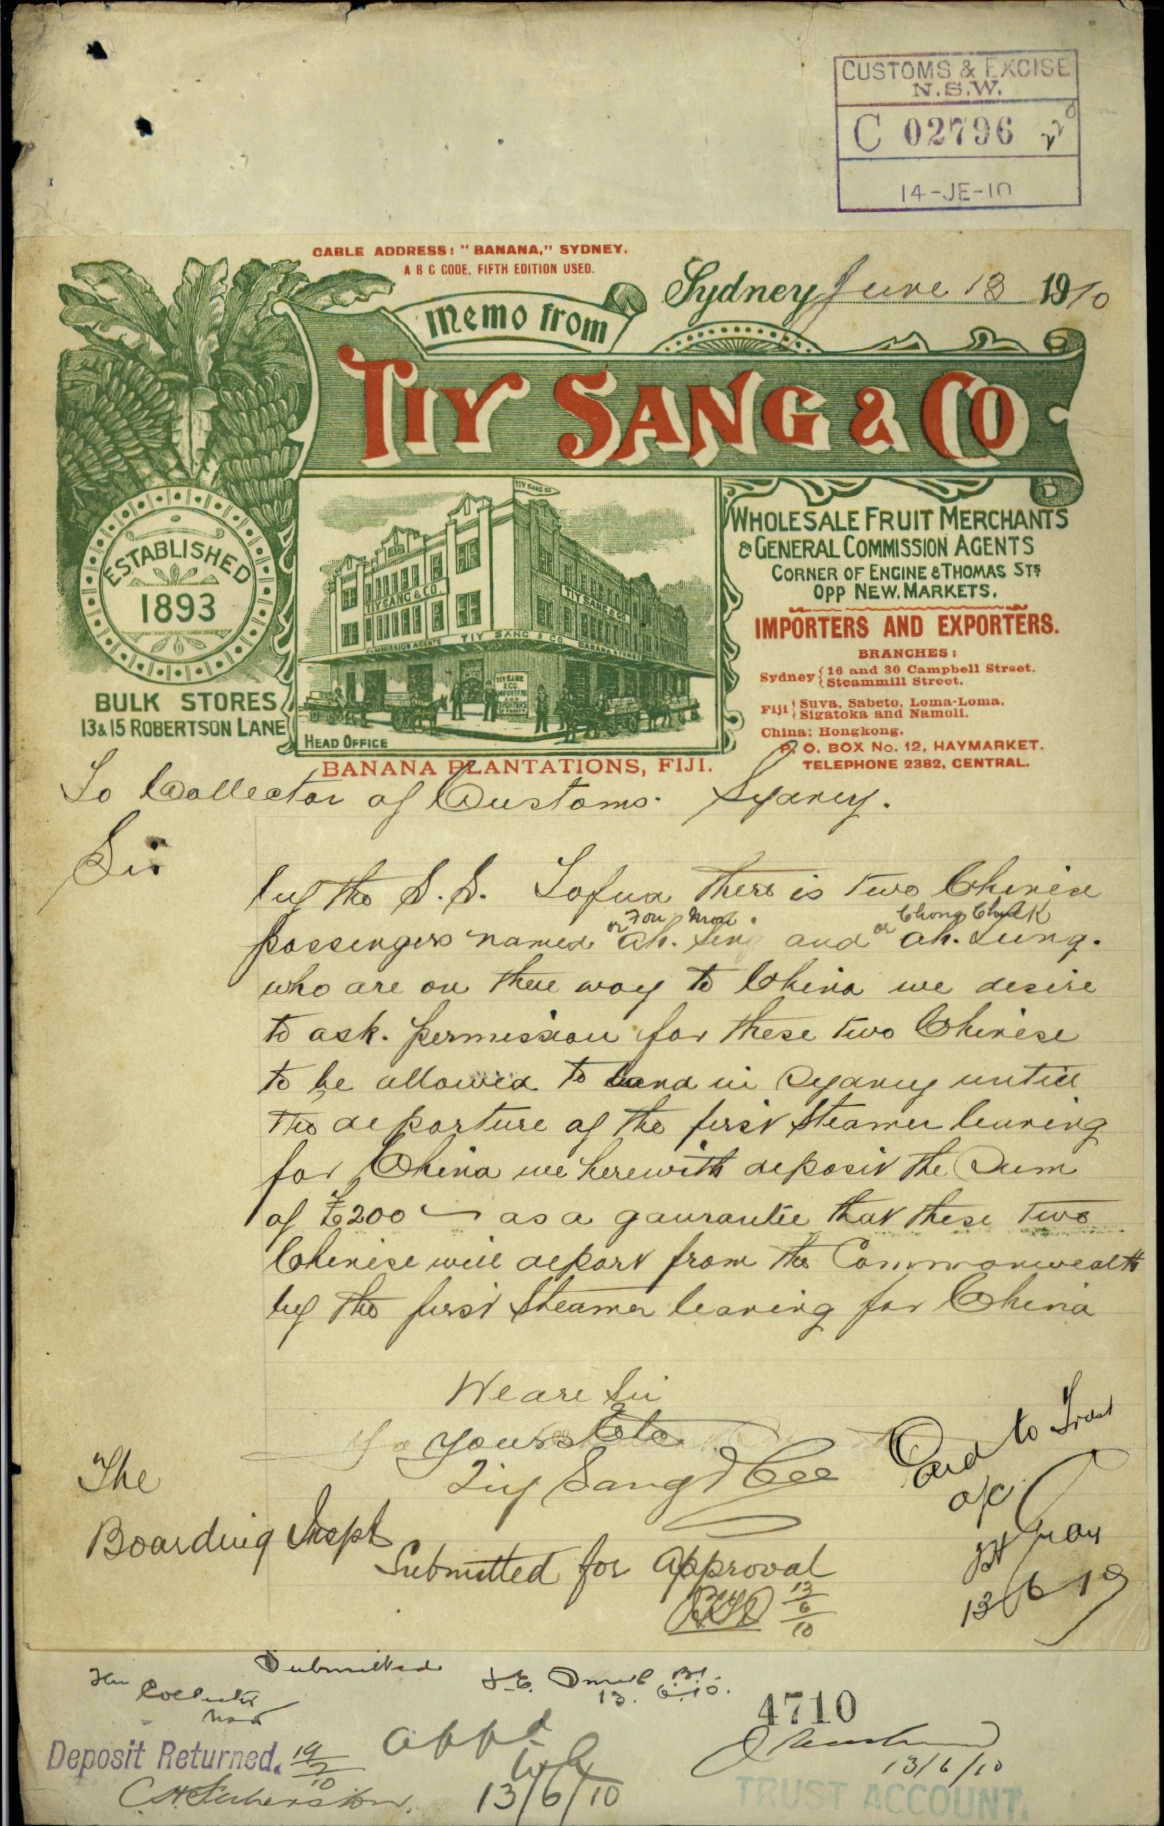 CUSTOMS & EXCISE
N.S.W.
C 02796
14-JE-10
CABLE ADDRESS: "BANANA," SYDNEY.
A B C CODE, FIFTH EDITION USED.
Sydney June 13 1910
Memo from
TIY SANG & CO
ESTABLISHED
1893
BULK STORES
13 & 15 ROBERTSON LANE
TIY SANG & CO
TIY SANG & CO.
TIY SANG & CO
COMMISSION AGENTS TIY SANG & CO BANANA
HEAD OFFICE
WHOLESALE FRUIT MERCHANTS
& GENERAL COMMISSION AGENTS
CORNER OF ENGINE & THOMAS STS
OPP NEW. MARKETS.
IMPORTERS AND EXPORTERS.
BRANCHES:
Sydney { 16 and 30 Campbell Street.
Steammill Street.
Fiji { Suva, Sabeto, Loma-Loma,
Sigatoka and Namoli.
China: Hongkong.
P. O. BOX No. 12, HAYMARKET.
TELEPHONE 2382, CENTRAL.
BANANA PLANTATIONS, FIJI.
To Collector of Customs. Sydney.
Sir
by the S.S. Tofua there is two Chinese
or Fou or Chong Chuck
passengers named Ah. Sing and Ah. Lung.
who are on there way to China we desire
to ask. permission for these two Chinese
to be allowed to land in Sydney untill
the departure of the first Steamer leaving
for China we herewith deposit the Sum
of £200 — as a gaurantie that these two
Chinese will depart from the Commonwealth
by the first Steamer leaving for China
We are Sir
Yours
Tiy Sang & Coo
The
Boarding Inspt
Submitted for approval
13/6/10
to Trust
a/c
13/6/10
The Collector
Submitted
13.6.10.
4710
13/6/10
Deposit Returned.
appd
13/6/10
TRUST ACCOUNT.